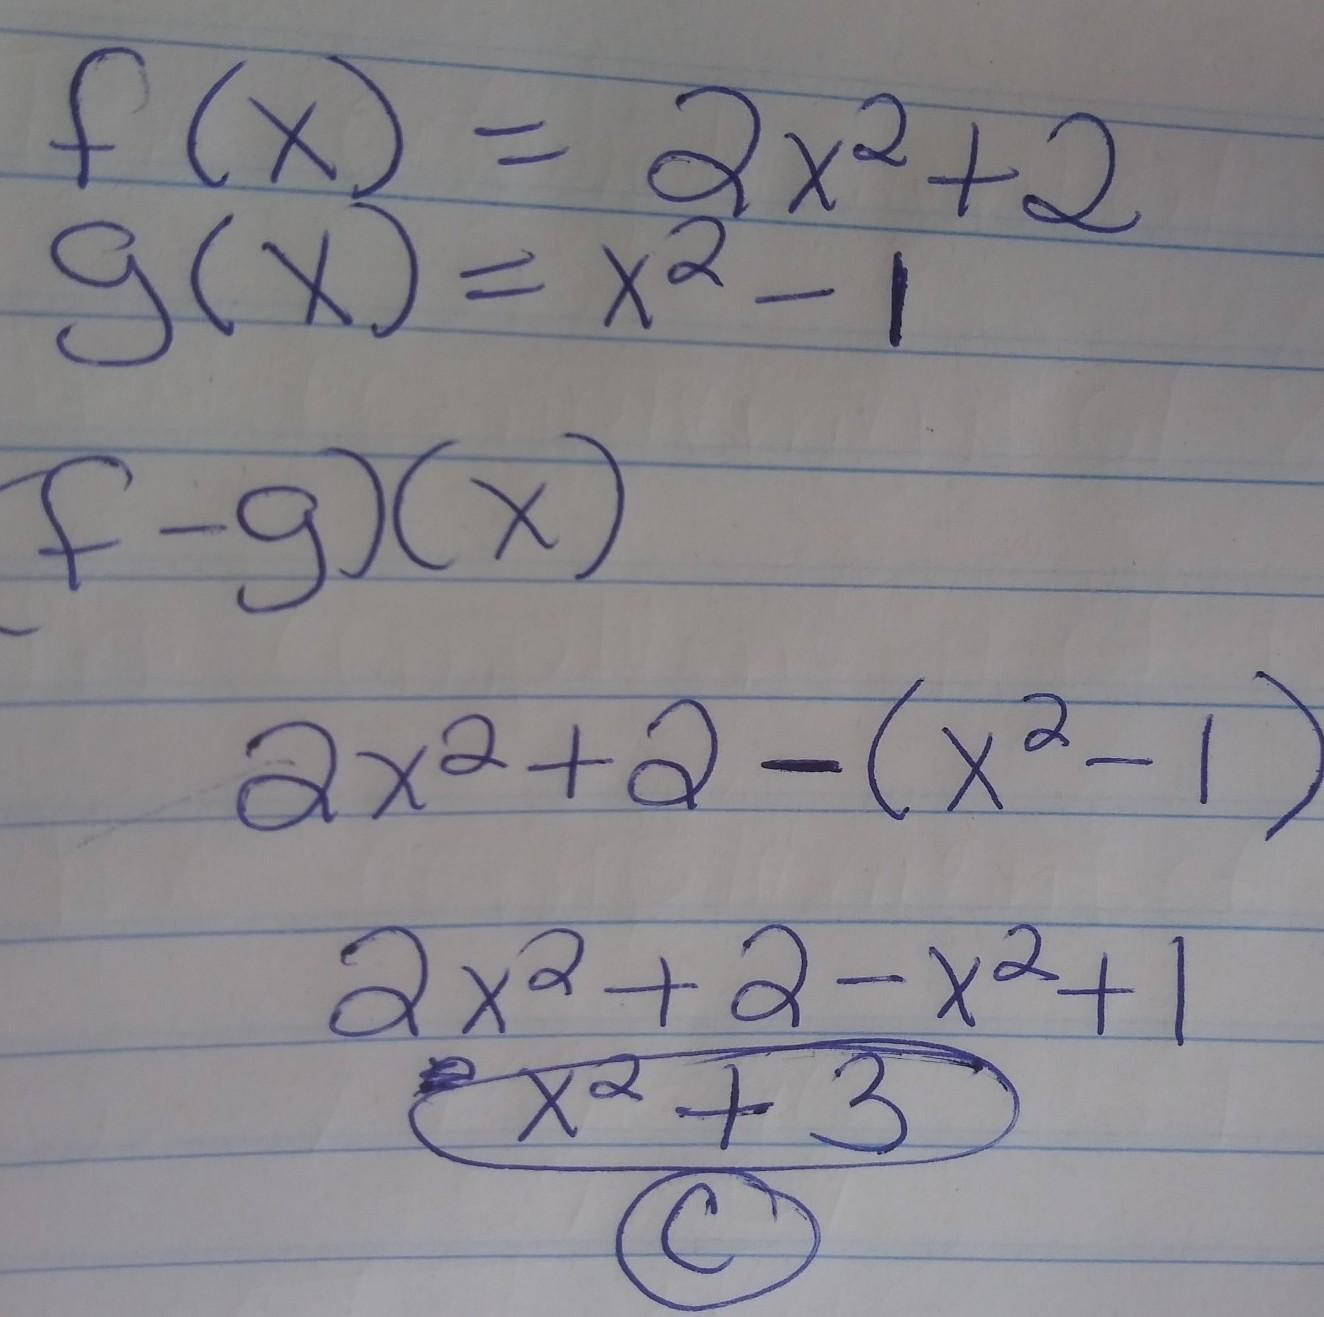 f(x) = 2x²+2
g(x) = x² - 1
(f-g)(x)
2x²+2-(x²-1)
2x²+2-x²+1
x²+3
C